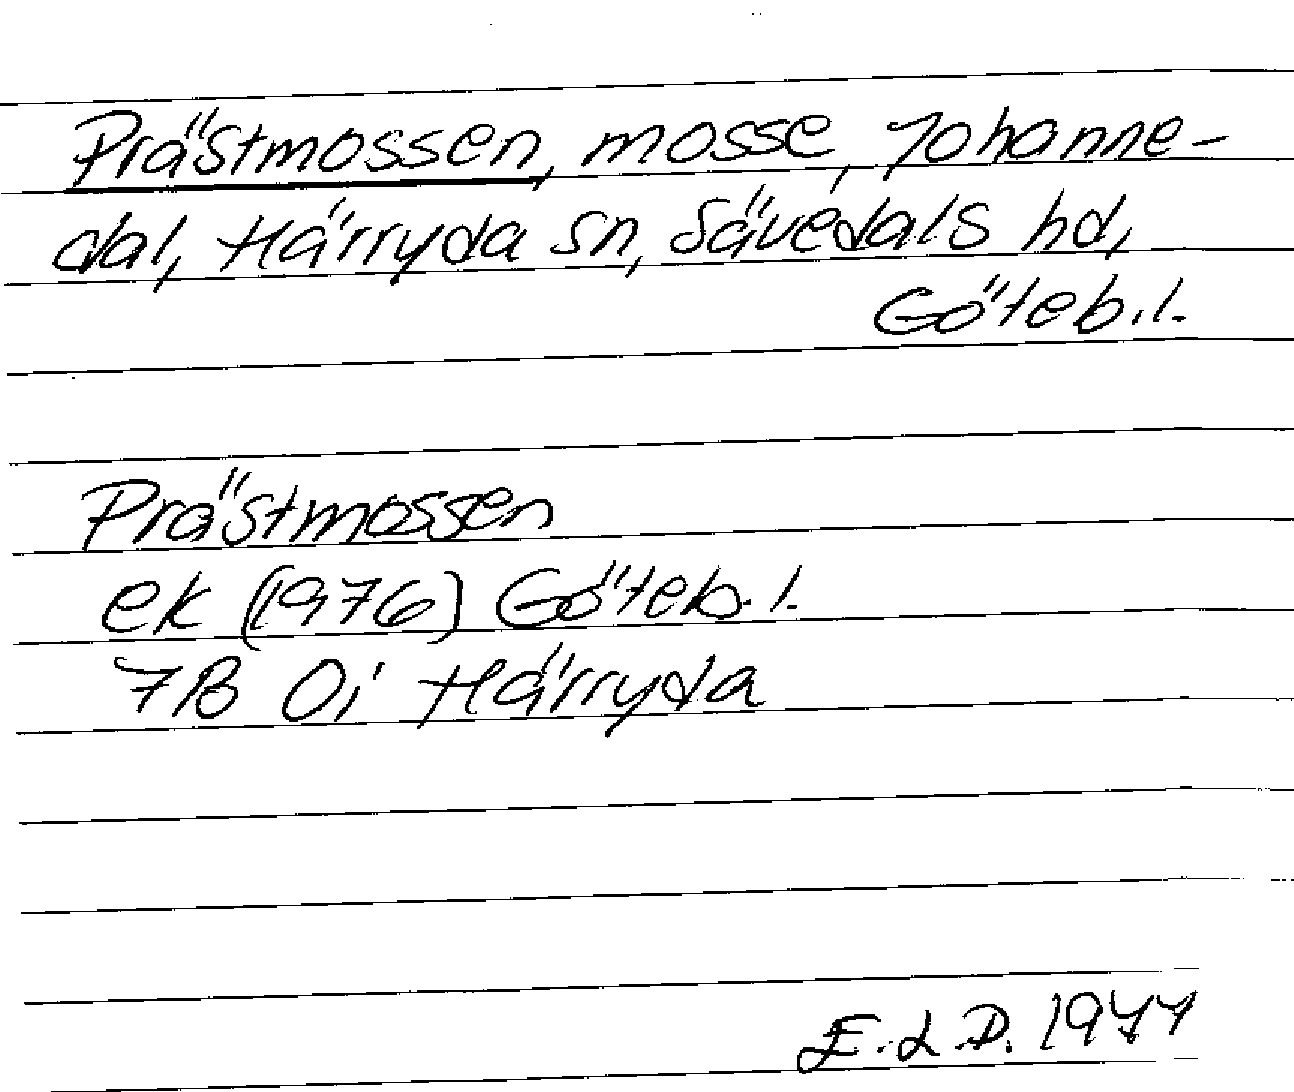 Prästmossen, mosse, Johanne-
dal, Härryda sn, Sävedals hd,
Göteb. l.
Prästmossen
ek (1976) Göteb. l.
7B 0i Härryda
E.L.D. 1977